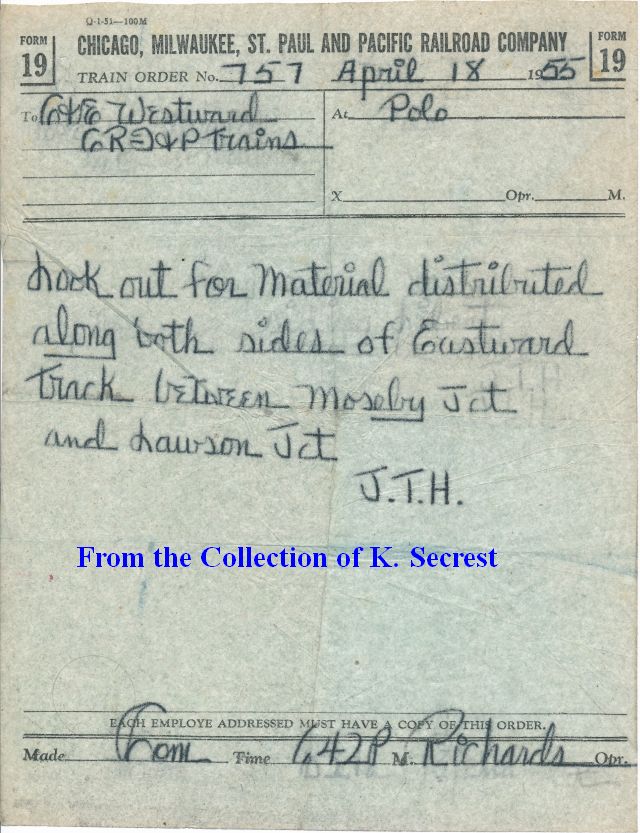 Q-1-51—100M
FORM 19
CHICAGO, MILWAUKEE, ST. PAUL AND PACIFIC RAILROAD COMPANY
FORM 19
TRAIN ORDER No. 757 April 18 1955
To C&E Westward
CRI&P Trains
At Polo
X Opr. M.
Look out for Material distributed
along both sides of Eastward
track between Moseby Jct
and Lawson Jct
J.T.H.
From the Collection of K. Secrest
EACH EMPLOYE ADDRESSED MUST HAVE A COPY OF THIS ORDER.
Made Com Time 642P M. Richards Opr.